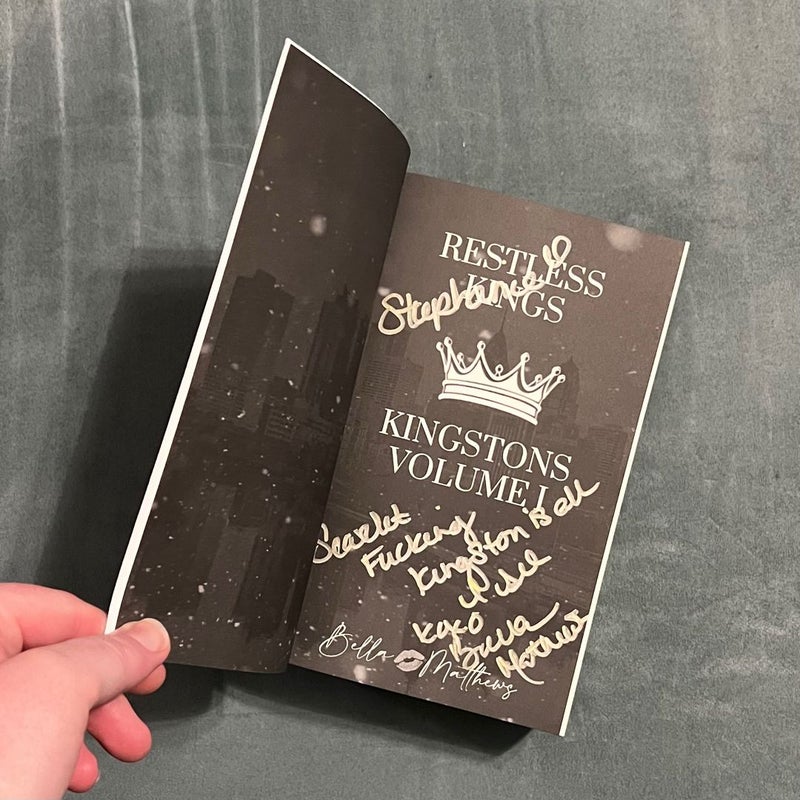 RESTLESS
KINGS
Stephanie
KINGSTONS
VOLUME I
Scarlet
Fucking
Kingston Ball
xoxo
Bella
Matthews
Bella Matthews